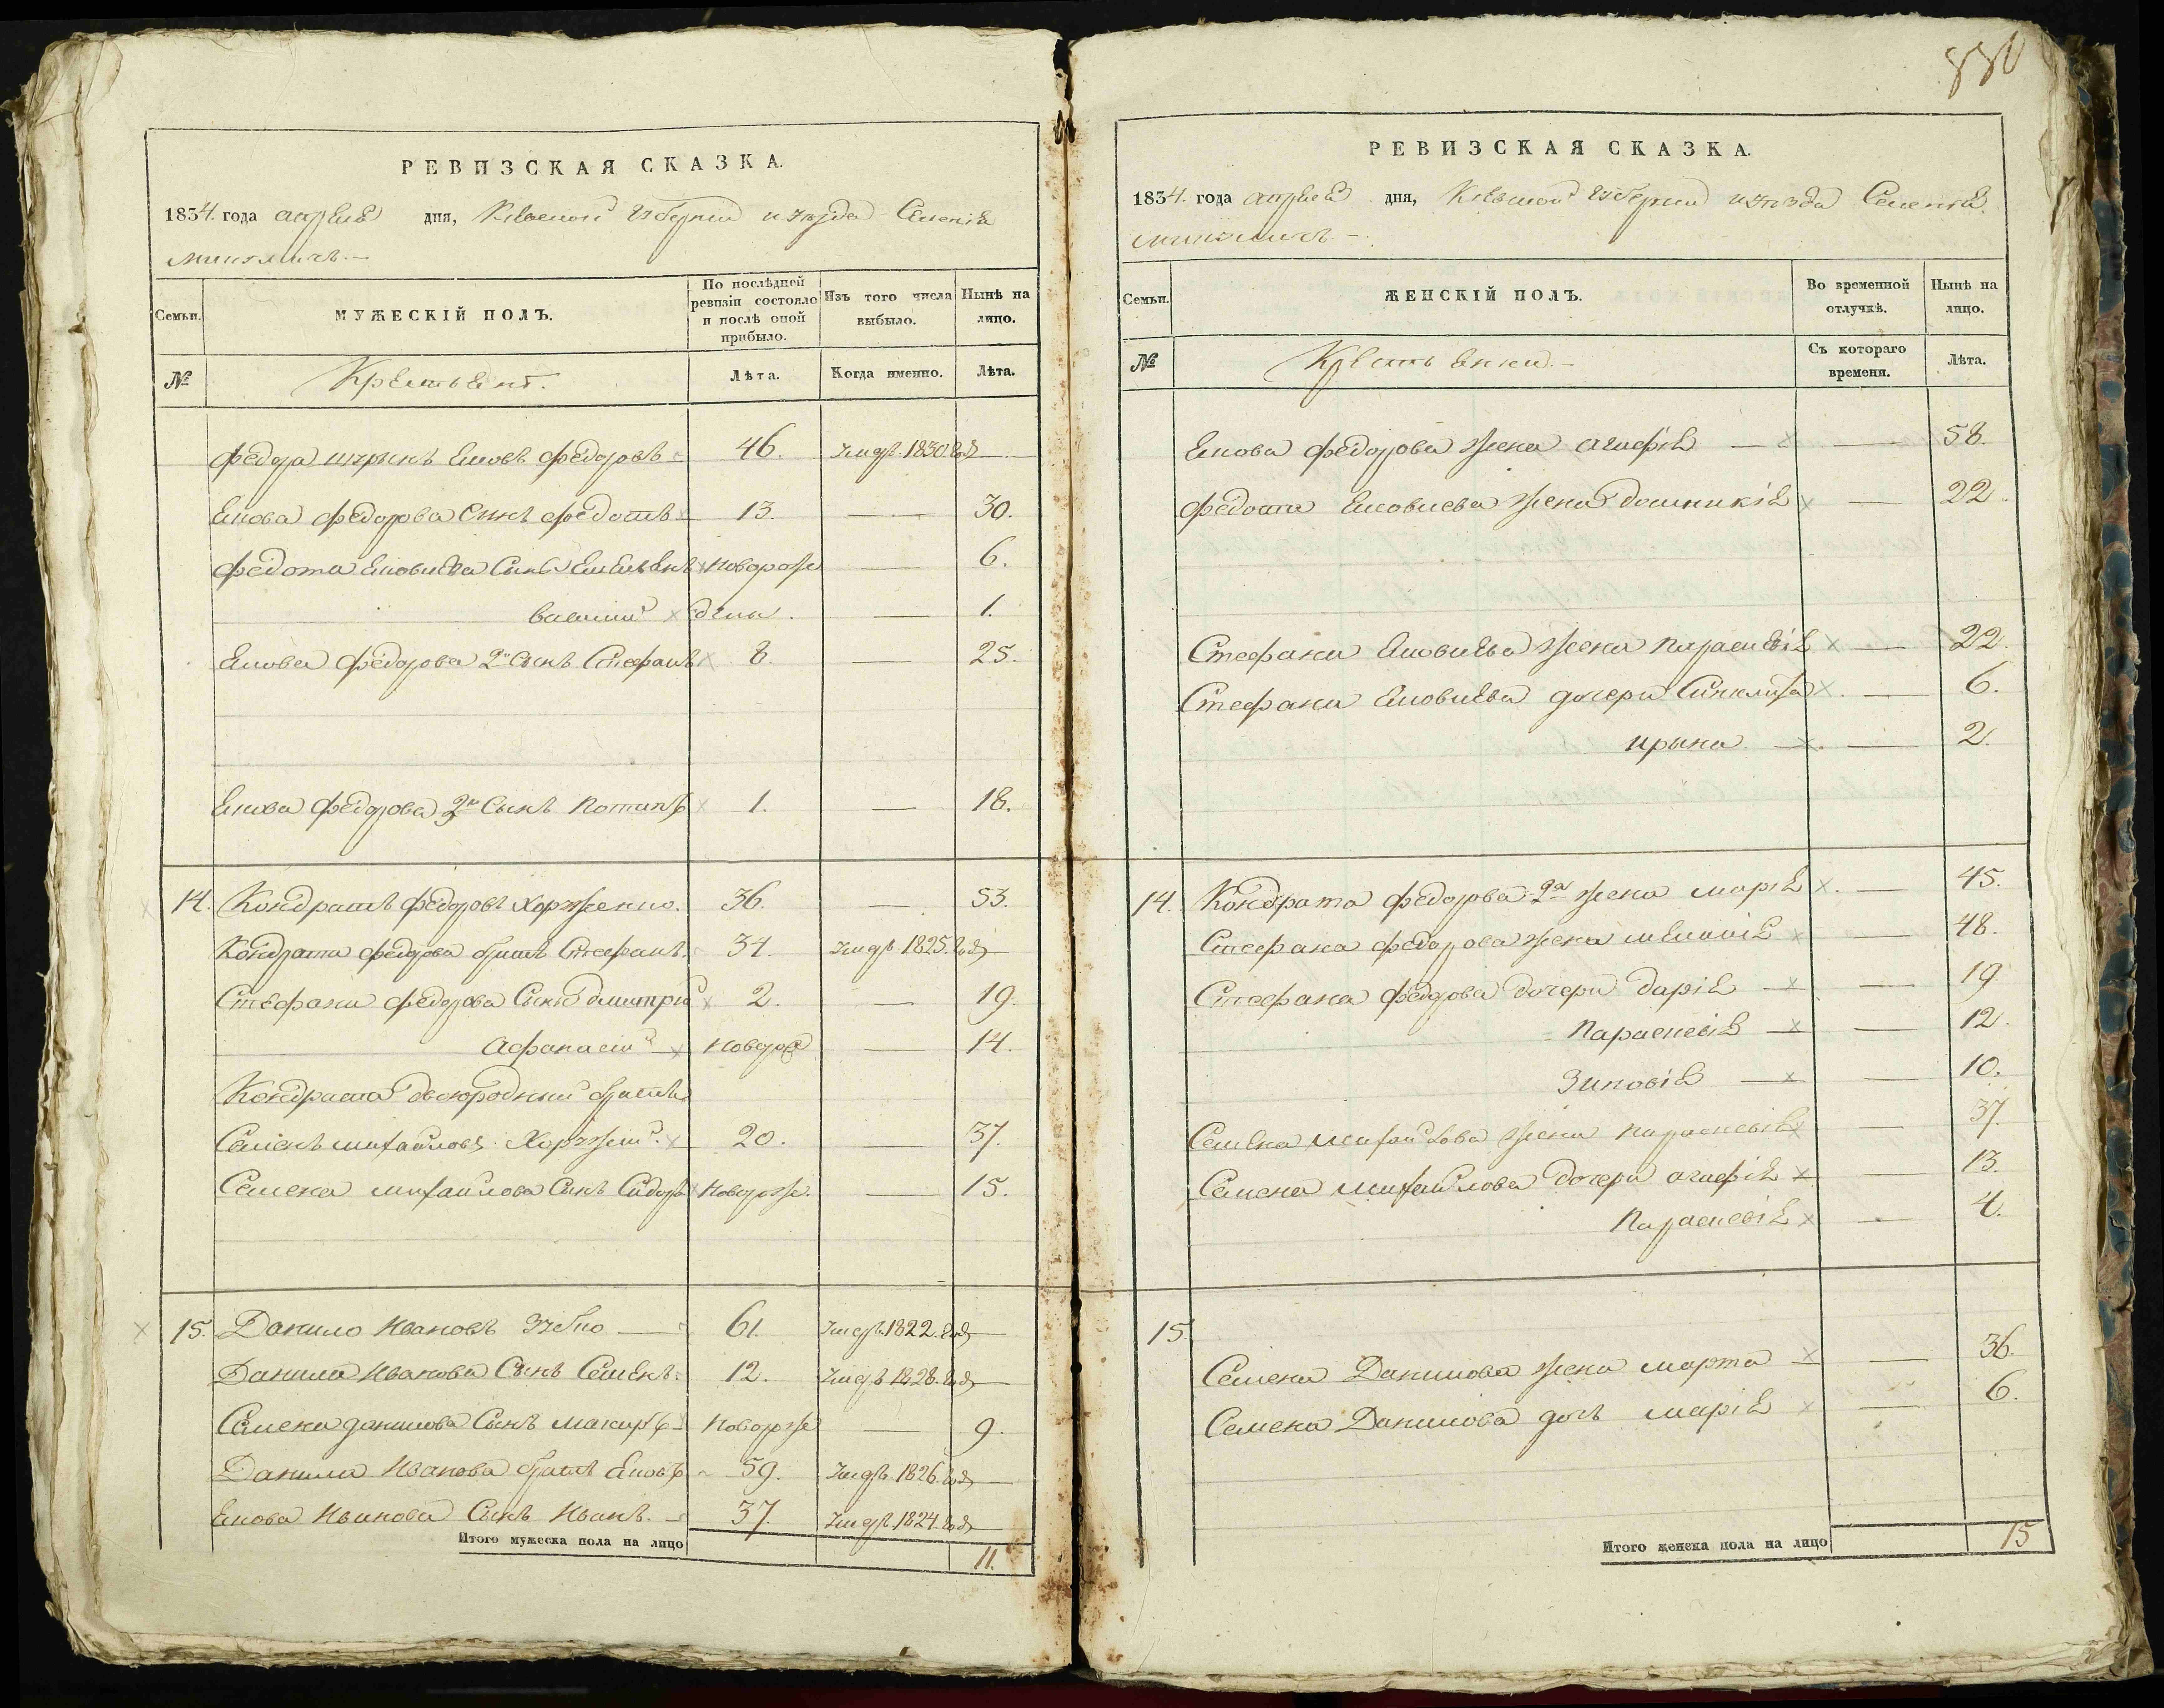 880
РЕВИЗСКАЯ СКАЗКА.
1834. года апреля дня, Киевской губернии и уезда Селенія
Семьи.
МУЖЕСКІЙ ПОЛЪ.
По послѣдней ревизіи состояло и послѣ оной прибыло.
Изъ того числа выбыло.
Нынѣ на лицо.
№
Крестьяне.
Лѣта.
Когда именно.
Лѣта.
Федора Еновъ Федоровъ 46. 1830. год
Енова Федорова Сынъ Федотъ 13. — 30.
Федота Сынъ Емельянъ новорож — 6.
василий дены. — 1.
Енова Федорова 2й Сынъ Стефанъ 8. — 25.
Енова Федорова 3й Сынъ Потапъ 1. — 18.
14. Кондратъ Федоровъ Хорженко. 36. — 53.
Кондрата Федорова братъ Стефанъ. 34. 1825. год
Стефана Федорова Сынъ Дмитрий 2. — 19.
Афанасий новорож — 14.
Кондрата двоюродный братъ
Семенъ Михайловъ 20. — 37.
Семена Михайлова Сынъ Сидоръ новорож. — 15.
15. Данило Ивановъ 61. 1822. год
Данила Иванова Сынъ Семенъ. 12. 1828. год
Семена данилова Сынъ макаръ новорож — 9.
Данила Иванова братъ Еновъ 59. 1826. год
Енова Иванова Сынъ Иванъ. 37. 1824. год
Итого мужеска пола на лицо 11.
РЕВИЗСКАЯ СКАЗКА.
1834. года апреля дня, Киевской губернии и уезда Селенія
Семьи.
ЖЕНСКІЙ ПОЛЪ.
Во временной отлучкѣ.
Нынѣ на лицо.
№
Крестьянки.
Съ котораго времени.
Лѣта.
Енова Федорова жена агафія — — 58.
Федота жена домникія — 22.
Стефана жена параскевія — 22.
Стефана дочери — 6.
ирына — — 2.
14. Кондрата Федорова 2я жена марія — 45.
Стефана Федорова жена — 48.
Стефана Федорова дочери дарія — — 19.
параскевія — — 12.
Зиновія — — 10.
Семена Михайлова жена параскевія — 37.
Семена Михайлова дочери агафія — 13.
параскевія — 4.
15.
Семена Данилова жена марта — — 36.
Семена Данилова дочь марія — 6.
Итого женска пола на лицо 15